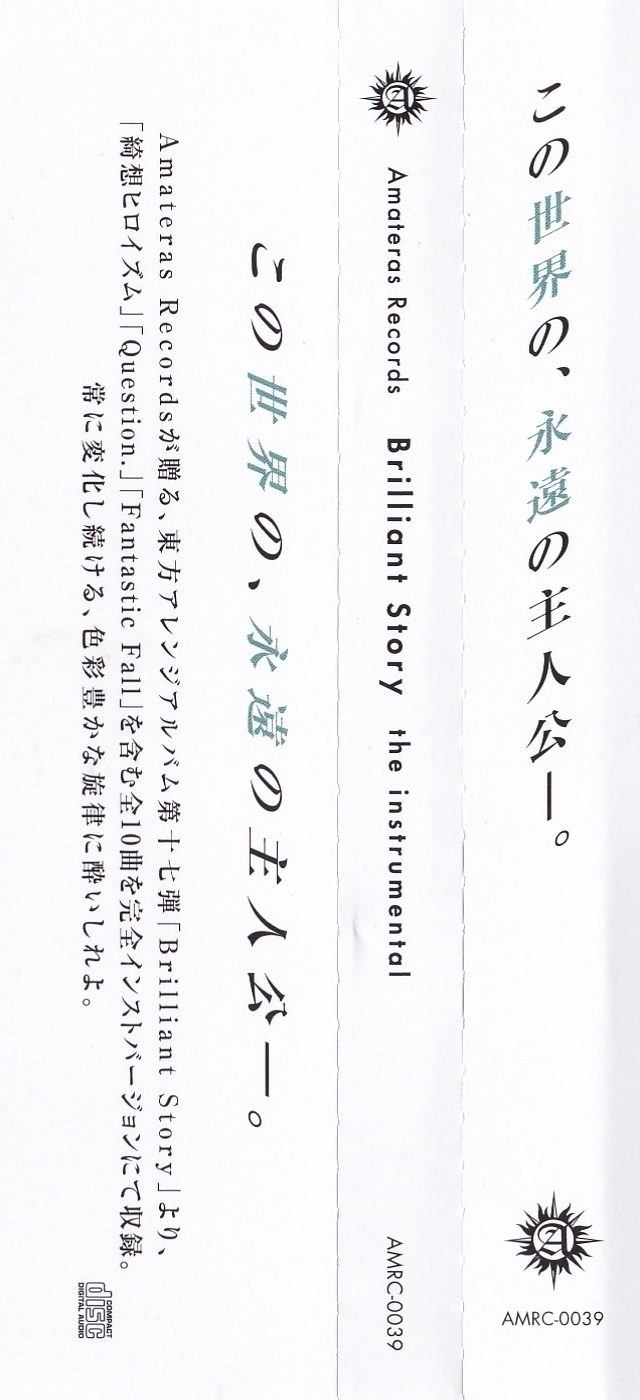 この世界の、永遠の主人公―。
AMRC-0039
Amateras Records Brilliant Story the instrumental AMRC-0039
この世界の、永遠の主人公―。
Amateras Recordsが贈る、東方アレンジアルバム第十七弾「Brilliant Story」より、
「綺想ヒロイズム」「Question.」「Fantastic Fall」を含む全10曲を完全インストバージョンにて収録。
常に変化し続ける、色彩豊かな旋律に酔いしれよ。
COMPACT
disc
DIGITAL AUDIO